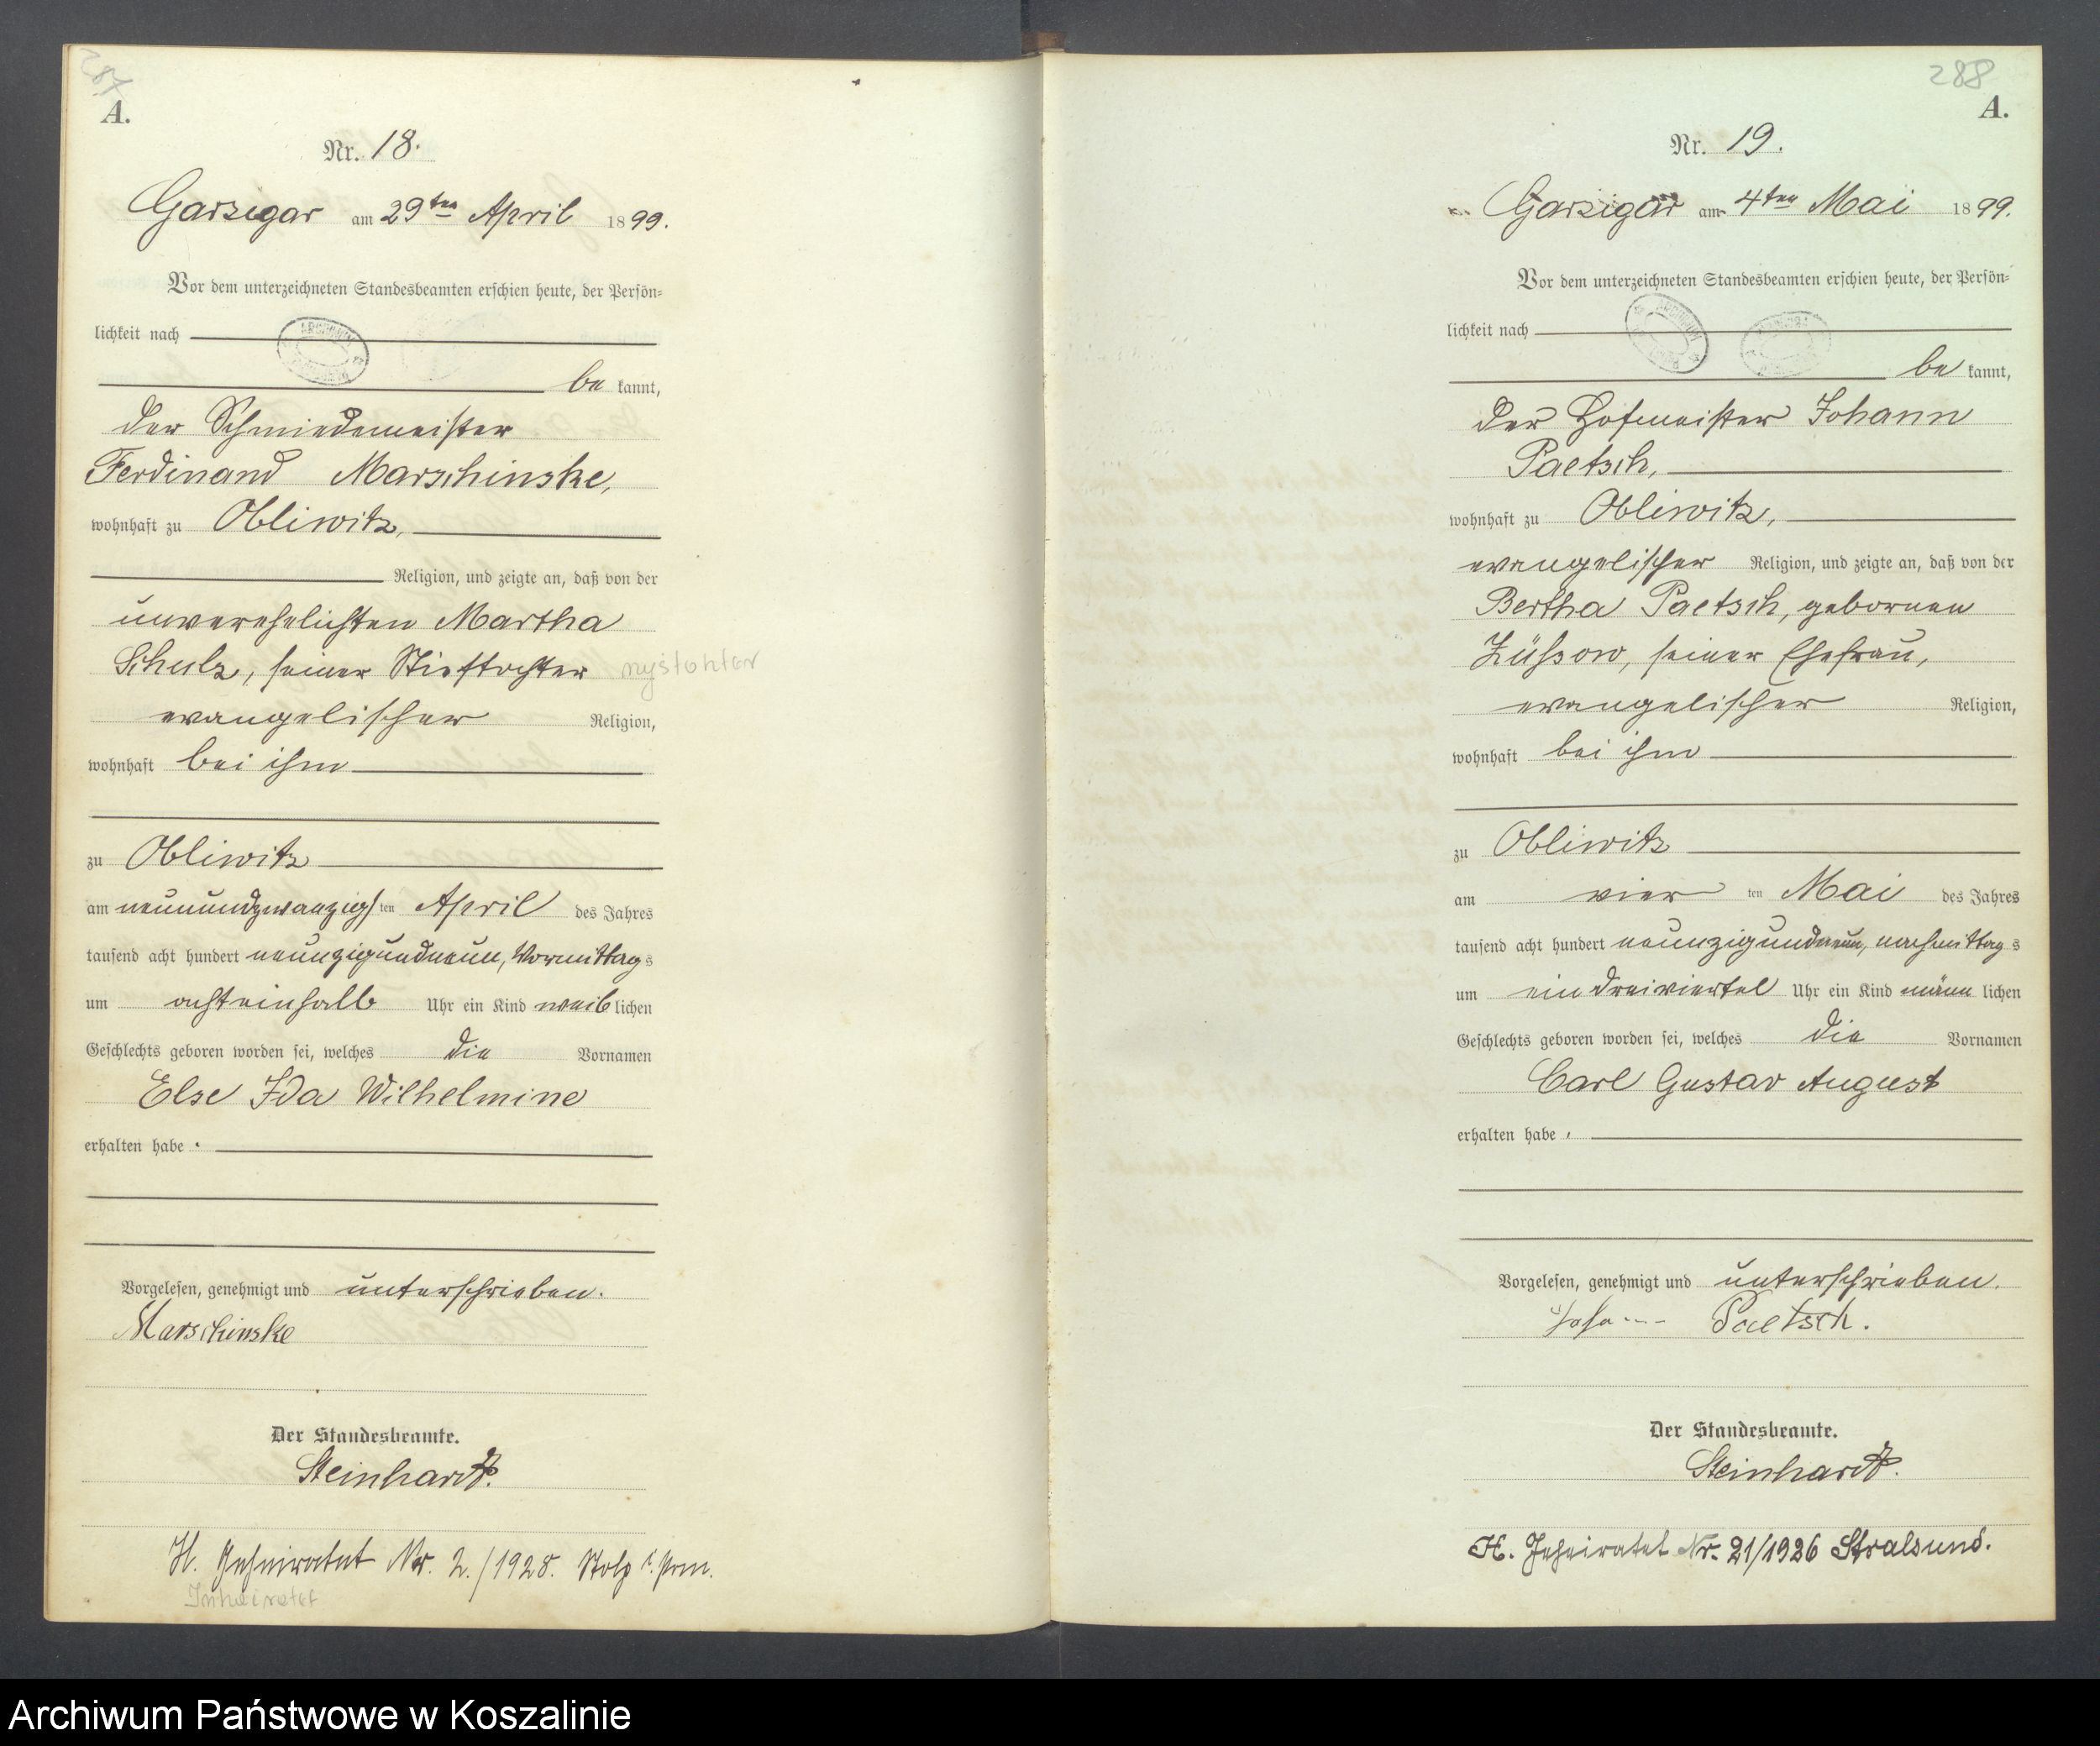 287
A.
Nr. 18.
Garzigar am 29ten April 1899.
Vor dem unterzeichneten Standesbeamten erschien heute, der Persön-
lichkeit nach
be kannt,
der Schmiedemeister
Ferdinand Marschinske,
wohnhaft zu Obliwitz,
Religion, und zeigte an, daß von der
unverehelichten Martha
Schulz, seiner Stieftochter
evangelischer Religion,
wohnhaft bei ihm
zu Obliwitz
am neunundzwanzigsten April des Jahres
tausend acht hundert neunzigundneun, Vormittags
um achteinhalb Uhr ein Kind weiblichen
Geschlechts geboren worden sei, welches die Vornamen
Else Ida Wilhelmine
erhalten habe.
Vorgelesen, genehmigt und unterschrieben.
Marschinske
Der Standesbeamte.
Steinhardt.
H. Geheiratet Nr. 2./1928. Stolp i. Pom.
288
A.
Nr. 19.
Garzigar am 4ten Mai 1899.
Vor dem unterzeichneten Standesbeamten erschien heute, der Persön-
lichkeit nach
be kannt,
der Hofmeister Johann
Paetsch,
wohnhaft zu Obliwitz,
evangelischer Religion, und zeigte an, daß von der
Bertha Paetsch, gebornen
Züssow, seiner Ehefrau,
evangelischer Religion,
wohnhaft bei ihm
zu Obliwitz
am vierten Mai des Jahres
tausend acht hundert neunzigundneun, nachmittags
um ein dreiviertel Uhr ein Kind männlichen
Geschlechts geboren worden sei, welches die Vornamen
Carl Gustav August
erhalten habe.
Vorgelesen, genehmigt und unterschrieben.
Paetsch.
Der Standesbeamte.
Steinhardt.
H. Geheiratet Nr. 21/1926 Stralsund.
Archiwum Państwowe w Koszalinie